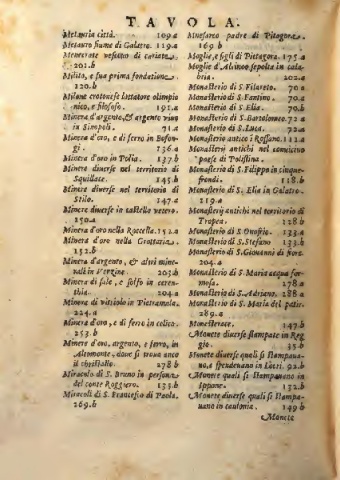 TAVOLA.
Metauria città. 109.a
Metauro fiume di Galatro. 119.a
Menecrate vestito di cariota.
201.b
Milito, e sua prima fondatione
120.b
Milone crotonese lottatore olimpio
nico, e filosofo. 191.a
Minera d'argento, & argento vivo
in Simpoli. 71.a
Minera d'oro, e di ferro in Besin-
gi. 136.a
Minera d'oro in Polia. 137.b
Minere diverse nel territorio di
Squillace. 145.b
Minere diverse nel territorio di
Stilo. 147.a
Minere diverse in castello vetero.
150.a
Minera d'oro nella Roccella. 152.a
Minera d'oro nella Grottaria.
152.b
Minera d'argento, & altri mine-
rali in Verzine. 203.b
Minera di sale, e solfo in ceren-
thia. 204.a
Minera di vitriolo in Pietramala.
224.a
Minera d'oro, e di ferro in celico.
253.b
Minere d'oro, argento, e ferro, in
Altomonte, dove si trova anco
il christallo. 278.b
Miracolo di S. Bruno in persona
del conte Roggiero. 135.b
Miracoli di S. Francesco di Paola.
269.b
Mnesarco padre di Pitagora.
169.b
Moglie, e figli di Pittagora. 175.a
Moglie d'Alcinoo sepolta in cala-
bria. 202.a
Monasterio di S. Filareto. 70.a
Monasterio di S. Fantino. 70.a
Monasterio di S. Elia. 70.b
Monasterio di S. Bartolomeo. 72.a
Monasterio di S. Luca. 72.a
Monasterio antico i Rossano. 112.a
Monasterij antichi nel convicino
paese di Polistina.
Monasterio di S. Filippo in cinque-
frondi. 118.b
Monasterio di S. Elia in Galatro.
119.a
Monasterij antichi nel territorio di
Tropea. 128.b
Monasterio di S. Onofrio. 133.a
Monasterio di S. Stefano 133.b
Monasterio di S. Giovanni di fiore.
204.a
Monasterio di S. Maria acqua for-
mosa. 278.a
Monasterio di S. Adriano. 288.a
Monasterio di S. Maria del patir.
289.a
Monasterace. 147.b
Monete diverse stampate in Reg
gio. 35.b
Monete diverse quali si stampava-
no, e spendevano in Locri. 92.b
Monete quali si stampavano in
Ippone. 132.b
Monete diverse quali si stam-
pavano in caulonia. 149.b
Monete